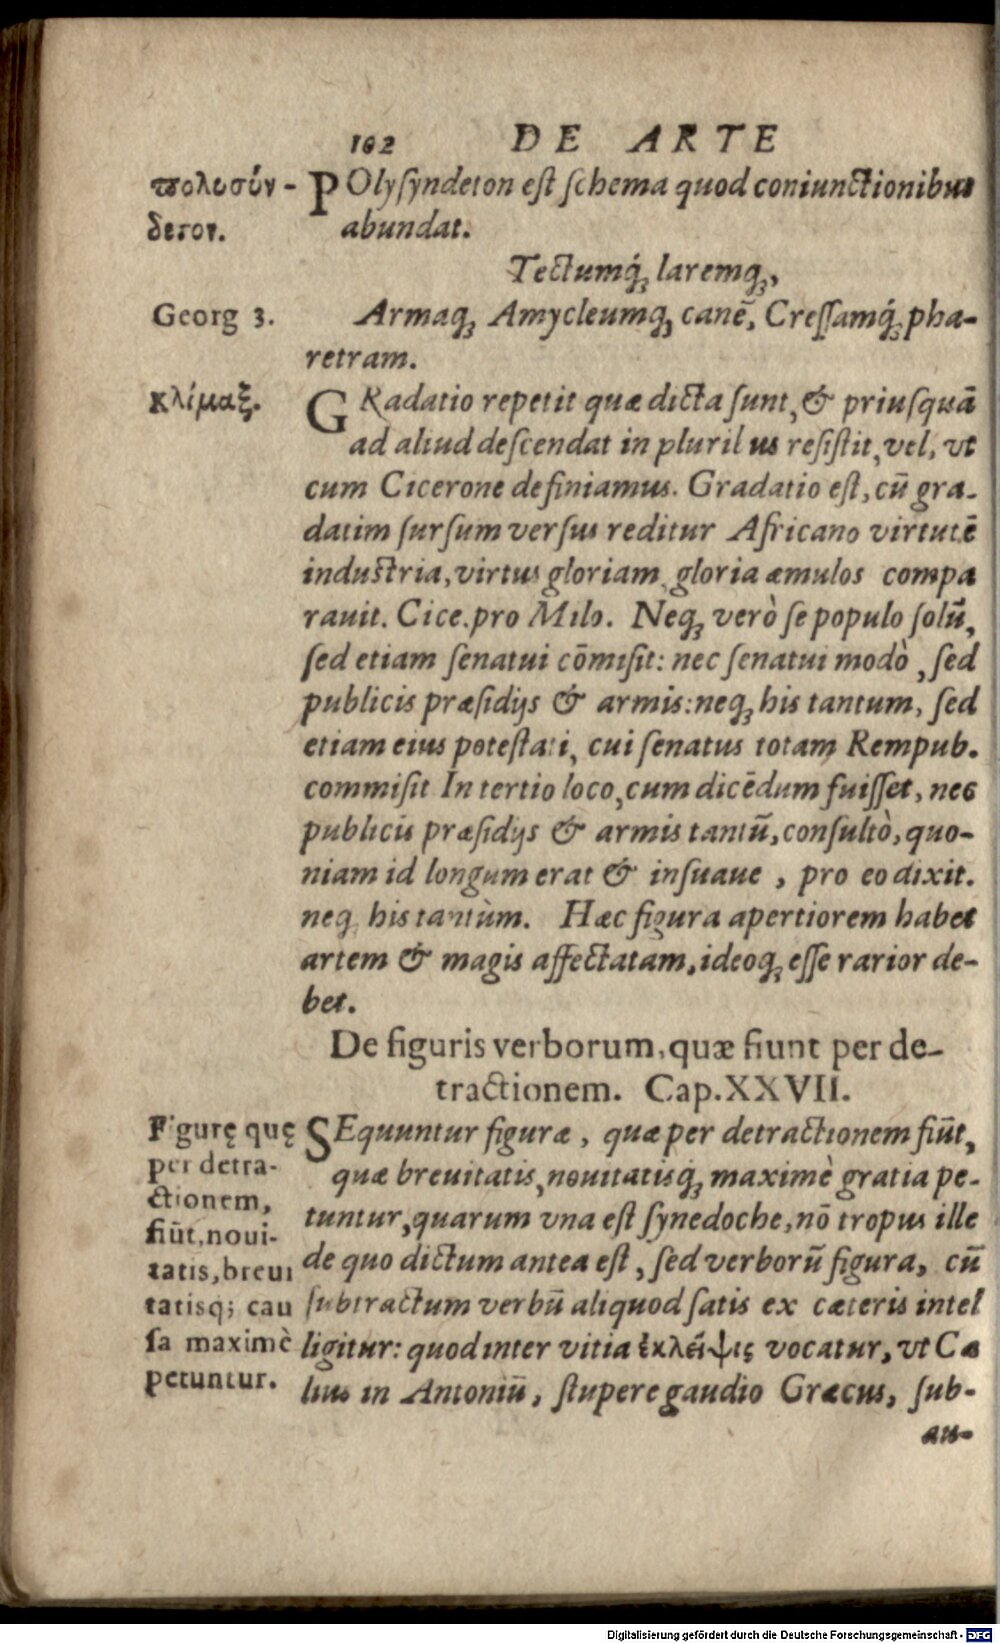 102 DE ARTE
πολυσύν-
δετον.
POlysyndeton est schema quod coniunctionibus
abundat.
Tectumq́;, laremq;,
Georg 3.
Armaq; Amycleumq; canē, Cressamq́; pha-
retram.
κλίμαξ.
GRadatio repetit quæ dicta sunt, & priusquā
ad aliud descendat in plurib us resistit, vel, vt
cum Cicerone definiamus. Gradatio est, cū gra-
datim sursum versus reditur Africano virtutē
industria, virtus gloriam gloria æmulos compa
rauit. Cice. pro Milo. Neq; verò se populo solū,
sed etiam senatui cōmisit: nec senatui modò, sed
publicis præsidijs & armis: neq; his tantum, sed
etiam eius potestati, cui senatus totam Rempub.
commisit In tertio loco, cum dicēdum fuisset, nec
publicis præsidijs & armis tantū, consultò, quo-
niam id longum erat & insuaue, pro eo dixit.
neq; his tantùm. Hæc figura apertiorem habet
artem & magis affectatam, ideoq; esse rarior de-
bet.
De figuris verborum, quæ fiunt per de-
tractionem. Cap. XXVII.
Figurę quę
per detra-
ctionem,
fiūt, noui-
tatis, breui
tatisq; cau
sa maximè
petuntur.
SEquuntur figuræ, quæ per detractionem fiūt,
quæ breuitatis, nouitatisq́; maximè gratia pe-
tuntur, quarum vna est synedoche, nō tropus ille
de quo dictum antea est, sed verborū figura, cū
subtractum verbū aliquod satis ex cæteris intel
ligitur: quod inter vitia ἐκλέιψις vocatur, vt Cæ
lius in Antoniū, stupere gaudio Græcus, sub-
au-
Digitalisierung gefördert durch die Deutsche Forschungsgemeinschaft - DFG